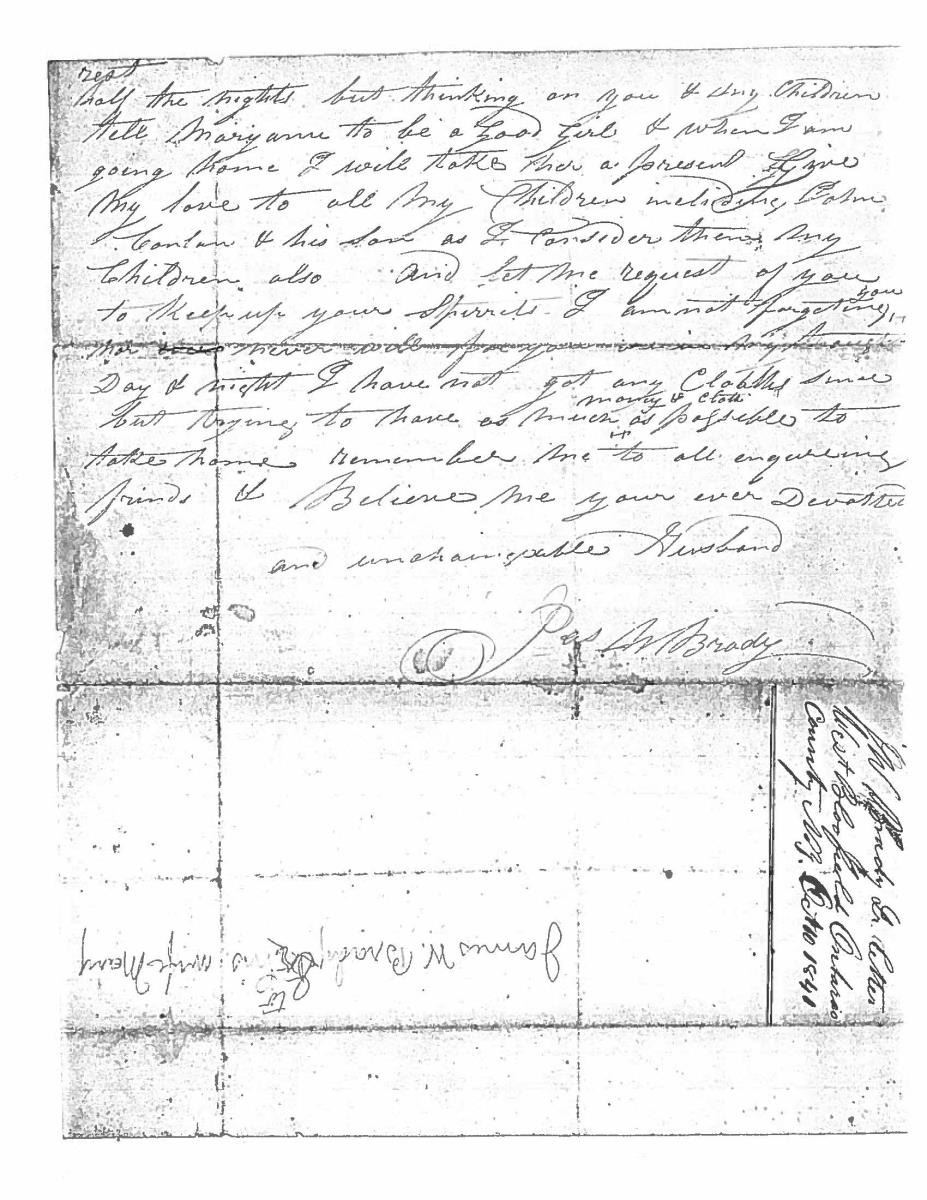 rest
half the nights but thinking on you & my Children
tell Maryann to be a good girl & when I am
going home I will take her a present Give
my love to all my Children including John
Conlan & his son as I consider them my
Children also and let me request of you
to keep up your Spirrits I am not forgeting
you
nor never will for you
Day & night I have not got any Cloaths since
money & cloth
but trying to have as much as possible to
take home remember me to all enquiring
frinds & Believe me your ever Devotted
and unchaingeable Husband
Jas W Brady
Brady Letter
West Bloofield Ontario
County N.Y. Oct 10 1840
James W. Brady
to
his wife Mary